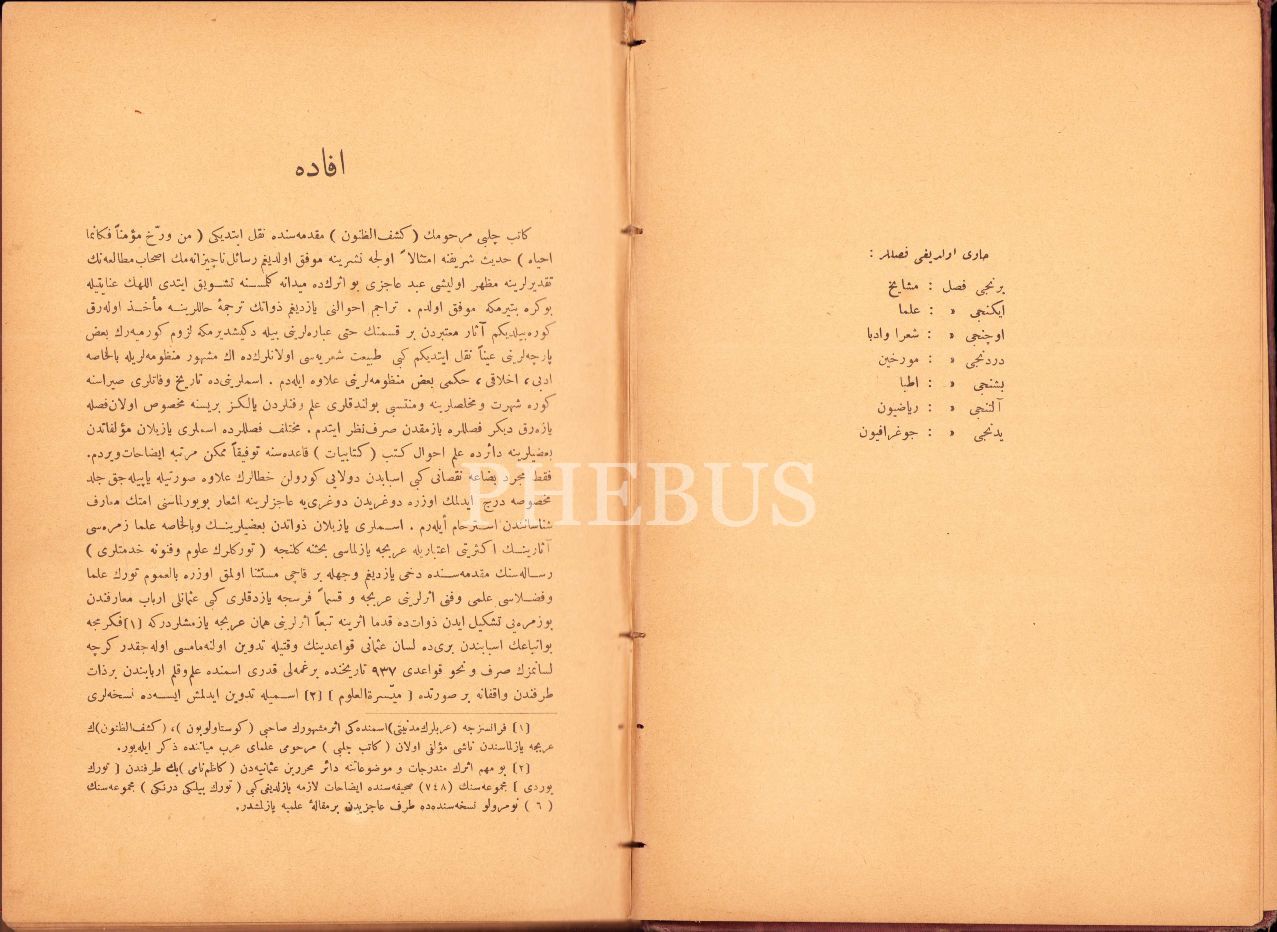 حاوی اولدیغی فصللر :
برنجی فصل : مشایخ
ایکنجی » : علما
اوچنجی » : شعرا وادبا
دردنجی » : مورخین
بشنجی » : اطبا
آلتنجی » : ریاضیون
یدنجی » : جوغرافیون
افاده
کاتب چلبی مرحومك ( کشف‌الظنون ) مقدمه‌سنده نقل ایتدیکی ( من ورّخ مؤمناً فکانما
احیاه ) حدیث شریفنه امتثالاً اولجه نشرینه موفق اولدیغم رسائل ناچیزانه‌مك اصحاب مطالعه‌نك
تقدیرلرینه مظهر اولیشی عبد عاجزی بو اثرك‌ده میدانه کلمسنه تشویق ایتدی اللهك عنایتیله
بوکره بتیرمکه موفق اولدم . تراجم احوالنی یازدیغم ذواتك ترجمۀ حاللرینه مأخذ اوله‌رق
کوره‌بیلدیکم آثار معتبردن بر قسمنك حتی عباره‌لرینی بیله دکیشدیرمکه لزوم کورمیه‌رك بعض
پارچه‌لرینی عیناً نقل ایتدیکم کبی طبیعت شعریه‌سی اولانلرك‌ده اك مشهور منظومه‌لریله بالخاصه
ادبی ، اخلاقی ، حکمی بعض منظومه‌لرینی علاوه ایله‌دم . اسملرینی‌ده تاریخ وفاتلری صیراسنه
کوره شهرت ومخلصلرینه ومنتسبی بولندقلری علم وفنلردن یالکز بریسنه مخصوص اولان‌فصله
یازه‌رق دیکر فصللره یازمقدن صرف‌نظر ایتدم . مختلف فصللرده اسملری یازیلان مؤلفاتدن
بعضیلرینه دائرده علم احوال کتب ( کتابیات ) قاعده‌سنه توفیقاً ممکن مرتبه ایضاحات‌ویردم .
فقط مجرد بضاعه نقصانی کبی اسبابدن دولایی کورولن خطالرك علاوه صورتیله یاپیله‌جق جلد
مخصوصه درج ایدلمك اوزره دوغریدن دوغری‌یه عاجزلرینه اشعار بویورلماسنی امتك معارف
شناسانندن استرحام أیله‌رم . اسملری یازیلان ذواتدن بعضیلرینك وبالخاصه علما زمره‌سی
آثارینك اکثریتی اعتباریله عربجه یازلماسی بحثنه کلنجه ( تورکلرك علوم وفنونه خدمتلری )
رساله‌سنك مقدمه‌سنده دخی یازدیغم وجهله بر قاچی مستثنا اولمق اوزره بالعموم تورك علما
وفضلاسی علمی وفنی اثرلرینی عربجه و قسماً فرسجه یازدقلری کبی عثمانلی ارباب معارفندن
بوزمره‌یی تشکیل ایدن ذوات‌ده قدما اثرینه تبعاً اثرلرینی همان عربجه یازمشلردرکه [۱]فکرمجه
بواتباعك اسبابندن بری‌ده لسان عثمانی قواعدینك وقتیله تدوین اولنه‌مامسی اوله‌جقدر کرچه
لسانمزك صرف و نحو قواعدی ۹۳۷ تاریخنده برغمه‌لی قدری اسمنده علم‌وقلم اربابندن برذات
طرفندن واقفانه بر صورتده [ میّسرةالعلوم ] [۲] اسمیله تدوین ایدلمش ایسه‌ده نسخه‌لری
[۱] فرانسزجه (عربلرك‌مدنیتی)اسمنده‌کی اثرمشهورك صاحبی (کوستاولوبون )، (کشف‌الظنون)ك
عربجه یازلماسندن ناشی مؤلفی اولان ( کاتب چلبی ) مرحومی علمای عرب میاننده ذکر ایله‌یور.
[۲] بو مهم اثرك مندرجات و موضوعاتنه دائر محررین عثمانیه‌دن ( کاظم‌نامی )بك طرفندن [ تورك
یوردی ] مجموعه‌سنك (۷٤۸) صحیفه‌سنده ایضاحات لازمه یازلدیغی‌کبی ( تورك بیلکی درنکی ) مجموعه‌سنك
( ٦ ) نومرولو نسخه‌سنده‌ده طرف عاجزیدن برمقالۀ علمیه یازلمشدر.
PHEBUS